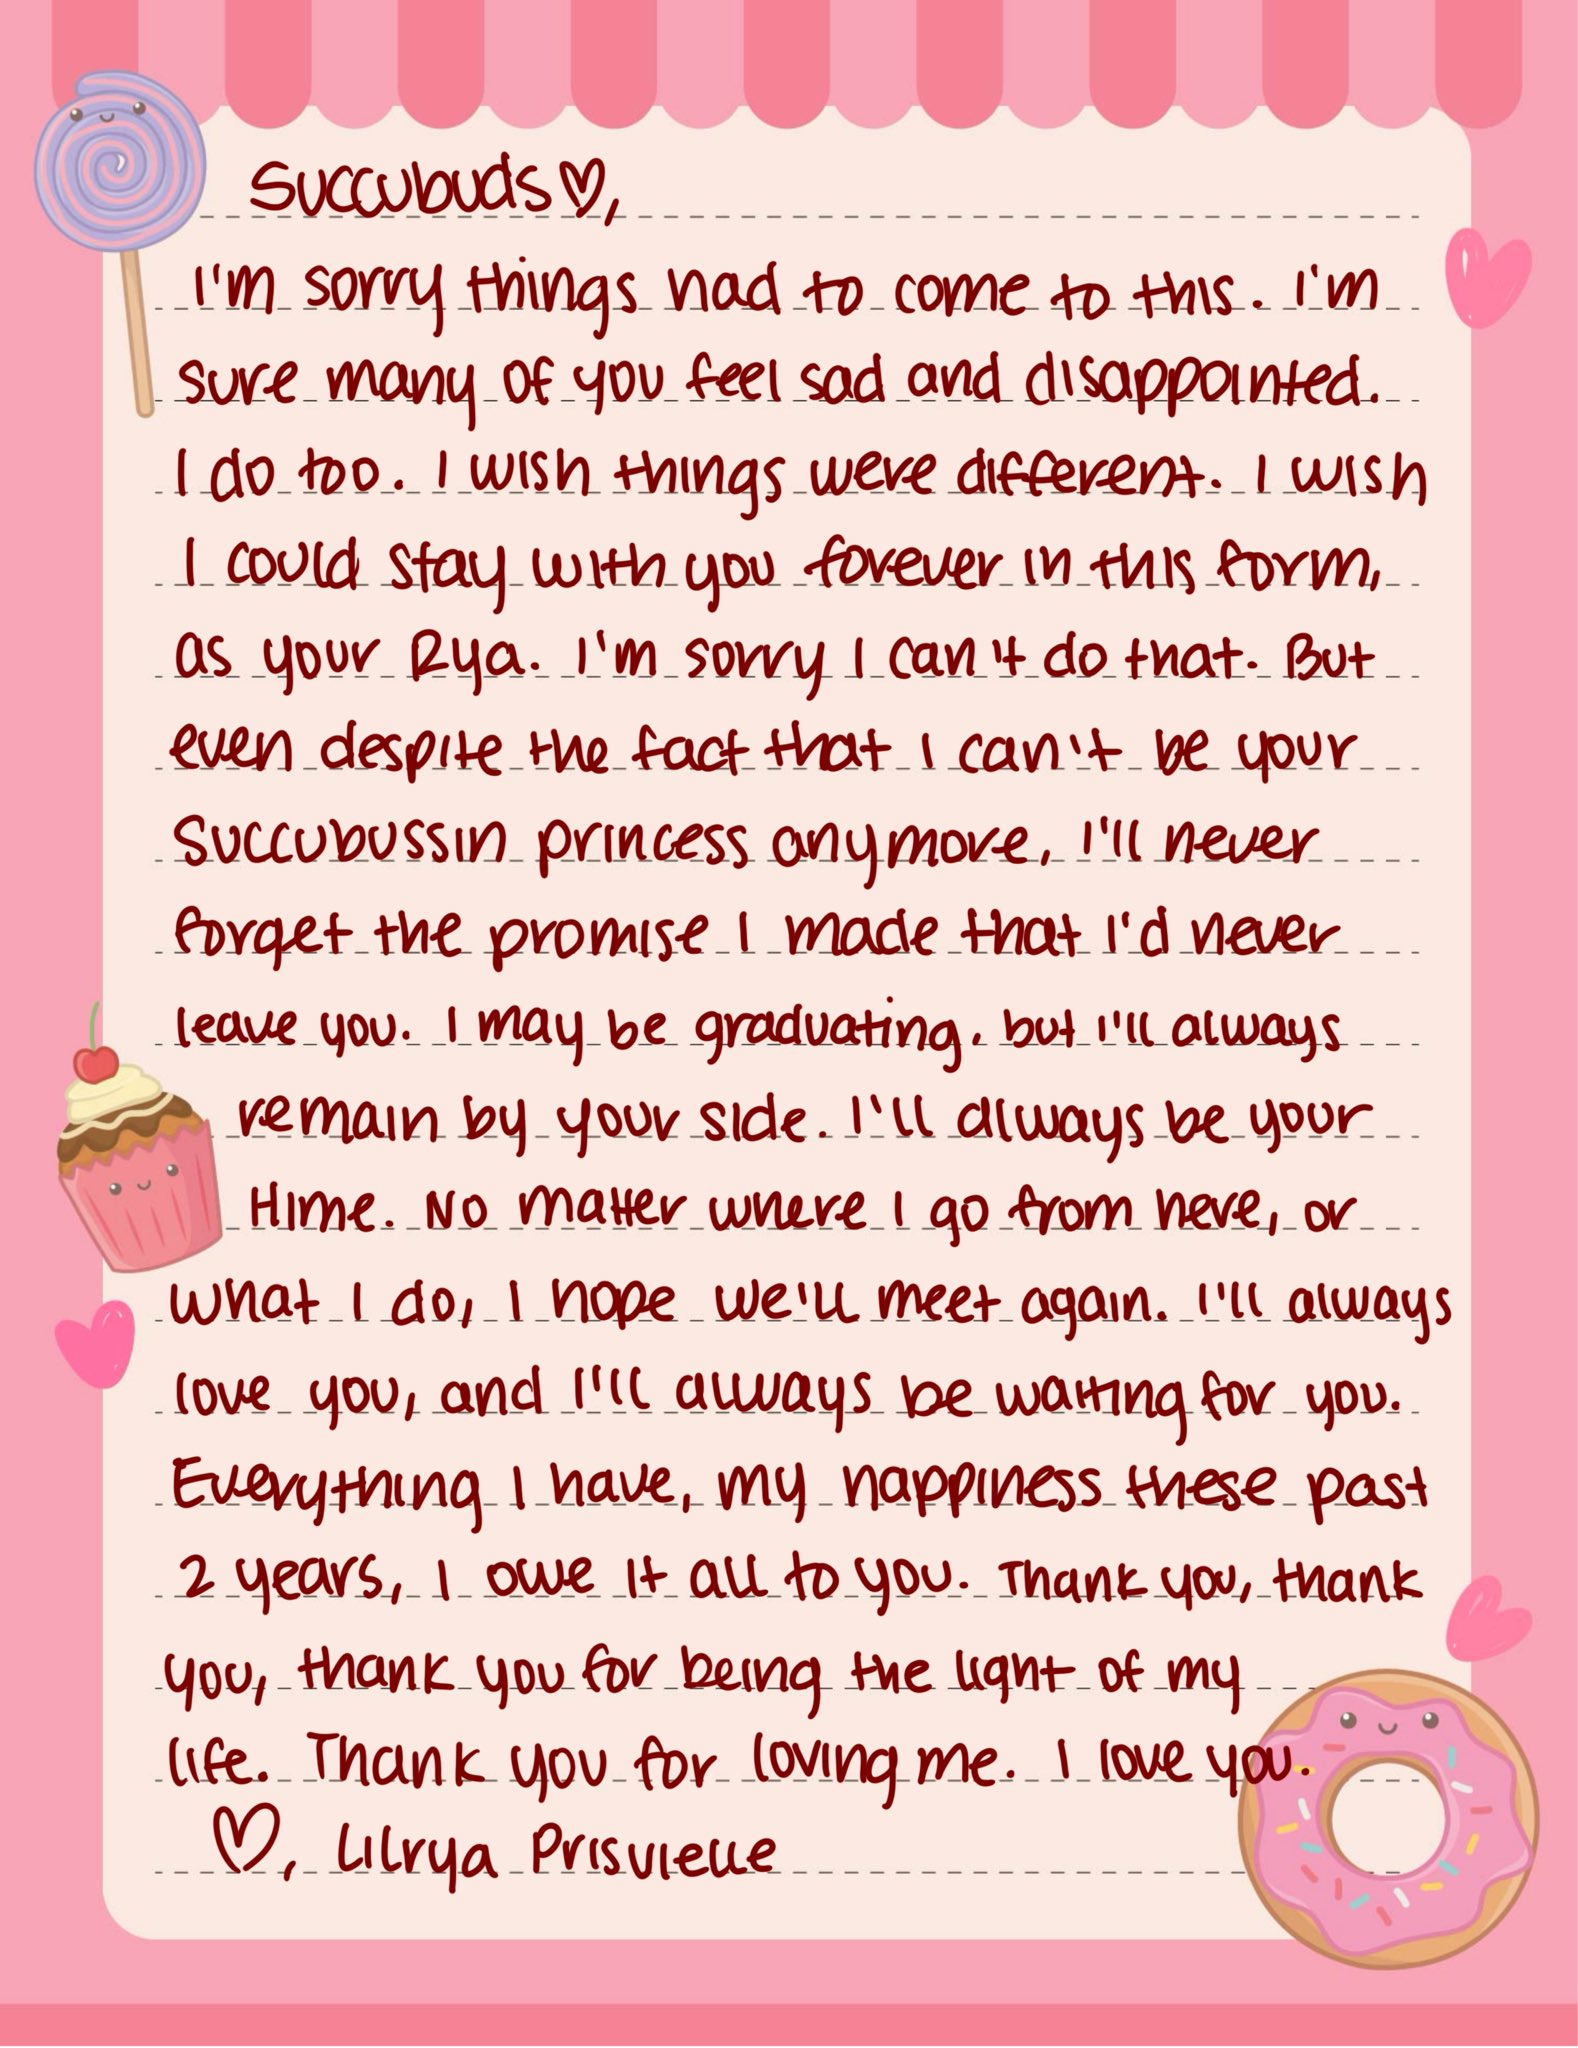 Succubuds♡,
I'm sorry things had to come to this. I'm
sure many of you feel sad and disappointed.
I do too. I wish things were different. I wish
I could stay with you forever in this form,
as your Rya. I'm sorry I can't do that. But
even despite the fact that I can't be your
Succubussin princess anymore, I'll never
forget the promise I made that I'd never
leave you. I may be graduating, but I'll always
remain by your side. I'll always be your
Hime. No matter where I go from here, or
what I do, I hope we'll meet again. I'll always
love you, and I'll always be waiting for you.
Everything I have, my happiness these past
2 years, I owe it all to you. Thank you, thank
you, thank you for being the light of my
life. Thank you for loving me. I love you.
♡, Lilrya Prisvielle